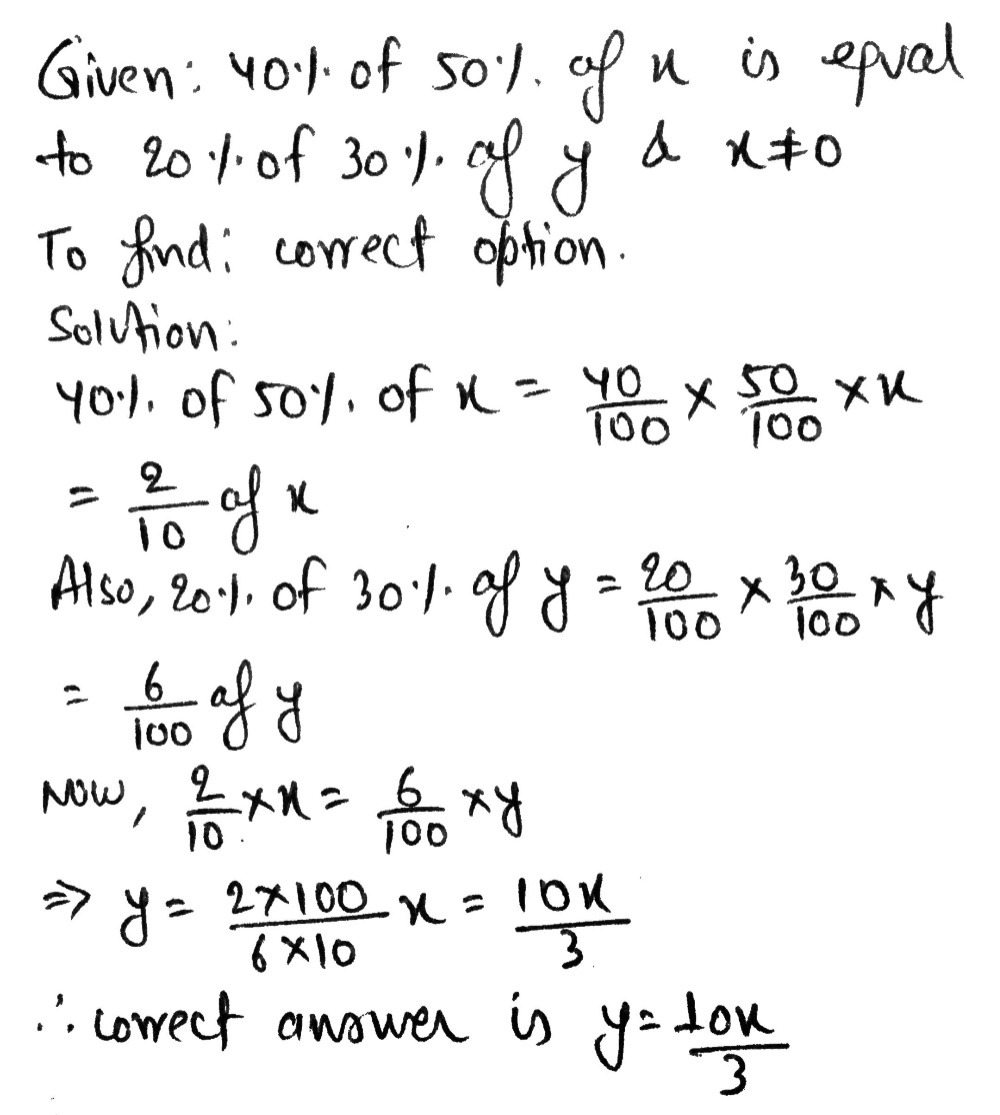 Given: 40% of 50% of x is equal
to 20% of 30% of y & x≠0
To find: correct option.
Solution:
40% of 50% of x = 40/100 × 50/100 × x
= 2/10 of x
Also, 20% of 30% of y = 20/100 × 30/100 × y
= 6/100 of y
Now, 2/10 × x = 6/100 × y
⇒ y = 2×100/6×10 x = 10x/3
∴ correct answer is y = 10x/3